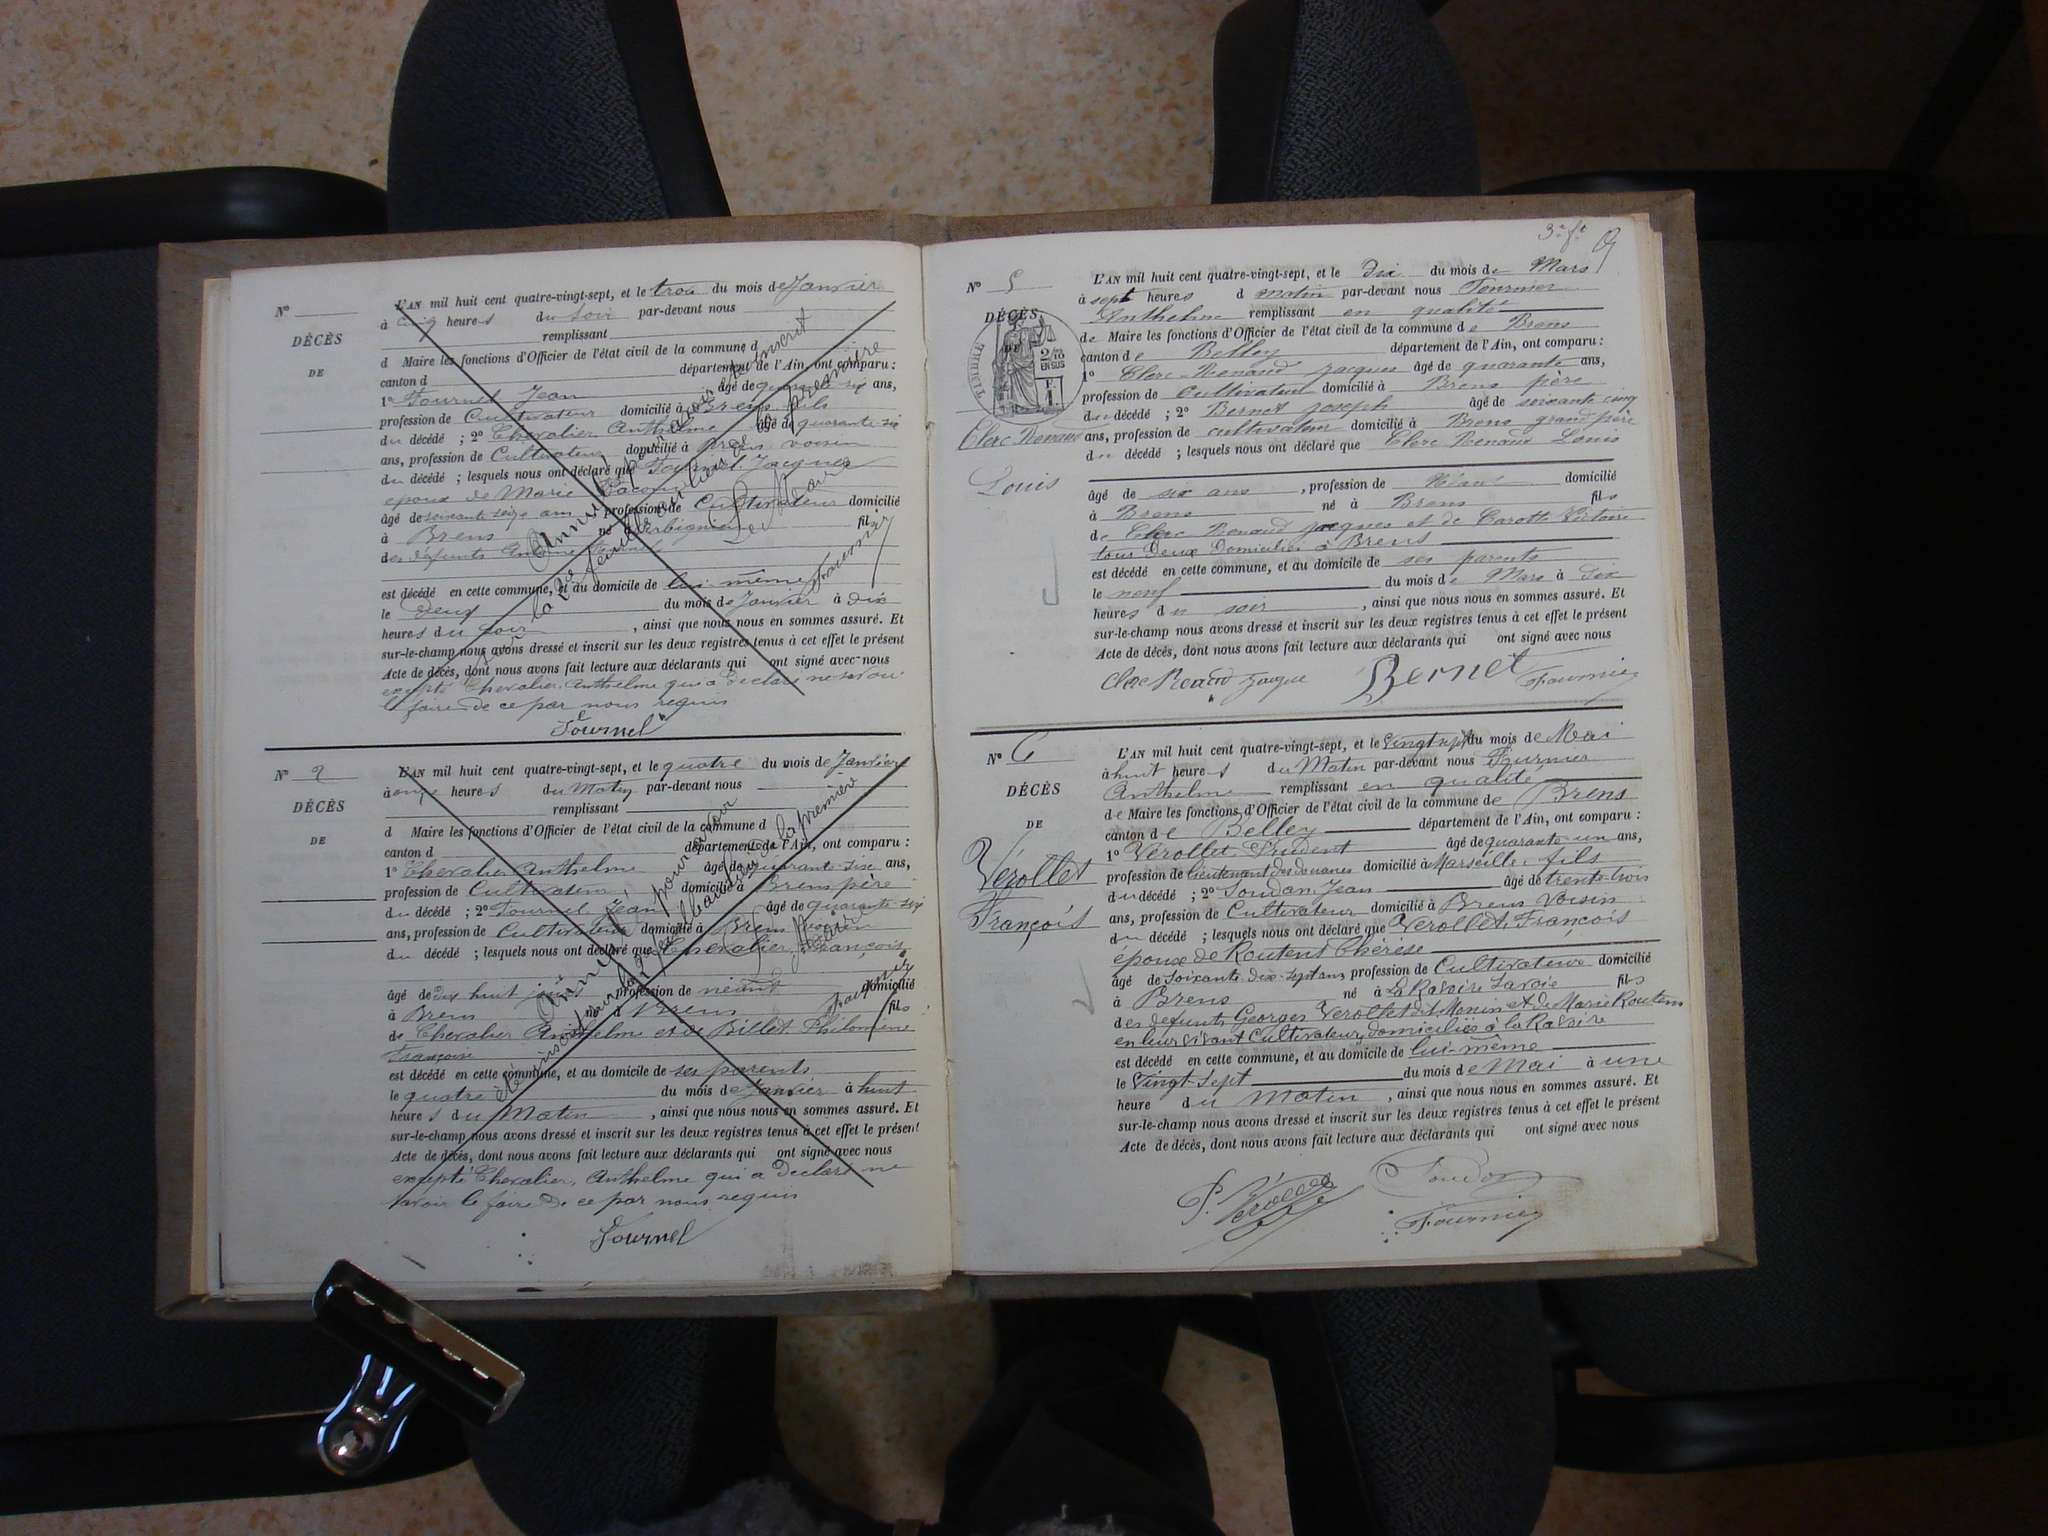 N°
DÉCÈS
DE
L'AN mil huit cent quatre-vingt-sept, et le trois du mois de Janvier
à cinq heures du soir par-devant nous
remplissant
d Maire les fonctions d'Officier de l'état civil de la commune d
canton d département de l'Ain, ont comparu :
1° Fournel Jean âgé de quarante six ans,
profession de Cultivateur domicilié à Brens fils
du décédé ; 2° Chevalier Anthelme âgé de quarante six
ans, profession de Cultivateur domicilié à Brens voisin
du décédé ; lesquels nous ont déclaré que Fournel Jacques
époux de Marie
âgé de soixante seize ans profession de Cultivateur domicilié
à Brens né à fils
des défunts Antoine
est décédé en cette commune, et au domicile de lui-même
le deux du mois de Janvier à dix
heures du soir , ainsi que nous nous en sommes assuré. Et
sur-le-champ nous avons dressé et inscrit sur les deux registres tenus à cet effet le présent
Acte de décès, dont nous avons fait lecture aux déclarants qui ont signé avec nous
excepté Chevalier Anthelme qui a déclaré ne savoir
le faire de ce par nous requis
Fournel
Annulé pour avoir été inscrit
sur la 2de feuille au lieu de la première
Le Maire
Fournier
N° 2
DÉCÈS
DE
L'AN mil huit cent quatre-vingt-sept, et le quatre du mois de Janvier
à onze heures du Matin par-devant nous
remplissant
d Maire les fonctions d'Officier de l'état civil de la commune d
canton d département de l'Ain, ont comparu :
1° Chevalier Anthelme âgé de quarante-six ans,
profession de Cultivateur domicilié à Brens père
du décédé ; 2° Fournel Jean âgé de quarante-six
ans, profession de Cultivateur domicilié à Brens voisin
du décédé ; lesquels nous ont déclaré que Chevalier François
âgé de dix huit jours profession de néant domicilié
à Brens né à Brens fils
de Chevalier Anthelme et de Billet Philomène
Françoise
est décédé en cette commune, et au domicile de ses parents
le quatre du mois de Janvier à huit
heures du Matin , ainsi que nous nous en sommes assuré. Et
sur-le-champ nous avons dressé et inscrit sur les deux registres tenus à cet effet le présent
Acte de décès, dont nous avons fait lecture aux déclarants qui ont signé avec nous
excepté Chevalier, Anthelme qui a déclaré ne
savoir le faire de ce par nous requis
Fournel
Annulé pour avoir
été inscrit sur la 2de feuille au lieu de la première
Le Maire
Fournier
3e ft
N° 5
DÉCÈS
DE
TIMBRE
2/10
EN SUS
Clerc Renaud
Louis
L'AN mil huit cent quatre-vingt-sept, et le dix du mois de Mars
à sept heures d matin par-devant nous Fournier
Anthelme remplissant en qualité
de Maire les fonctions d'Officier de l'état civil de la commune de Brens
canton de Belley département de l'Ain, ont comparu :
1° Clerc-Renaud Jacques âgé de quarante ans,
profession de Cultivateur domicilié à Brens père
du décédé ; 2° Bernet Joseph âgé de soixante cinq
ans, profession de cultivateur domicilié à Brens grand père
du décédé ; lesquels nous ont déclaré que Clerc Renaud Louis
âgé de six ans , profession de Néant domicilié
à Brens né à Brens fils
de Clerc Renaud Jacques et de Carotte Victoire
tous deux domiciliés à Brens
est décédé en cette commune, et au domicile de ses parents
le neuf du mois de Mars à dix
heures du soir , ainsi que nous nous en sommes assuré. Et
sur-le-champ nous avons dressé et inscrit sur les deux registres tenus à cet effet le présent
Acte de décès, dont nous avons fait lecture aux déclarants qui ont signé avec nous
Clerc Renaud Jacque Bernet Fournier
N° 6
DÉCÈS
DE
Vérollet
François
L'AN mil huit cent quatre-vingt-sept, et le vingt sept du mois de Mai
à huit heures du Matin par-devant nous Fournier
Anthelme remplissant en qualité
de Maire les fonctions d'Officier de l'état civil de la commune de Brens
canton de Belley département de l'Ain, ont comparu :
1° Vérollet Prudent âgé de quarante-un ans,
profession de lieutenant des douanes domicilié à Marseille, fils
du décédé ; 2° Soudan Jean âgé de trente-trois
ans, profession de Cultivateur domicilié à Brens voisin
du décédé ; lesquels nous ont déclaré que Vérollet, François
époux de Routens Thérèse
âgé de soixante-dix-sept ans, profession de Cultivateur domicilié
à Brens né à La Ravoire Savoie fils
des défunts Georges Vérollet dit Monin et de Marie Routens
en leur vivant Cultivateurs, domiciliés à la Ravoire
est décédé en cette commune, et au domicile de lui-même
le vingt-sept du mois de Mai à une
heure du Matin , ainsi que nous nous en sommes assuré. Et
sur-le-champ nous avons dressé et inscrit sur les deux registres tenus à cet effet le présent
Acte de décès, dont nous avons fait lecture aux déclarants qui ont signé avec nous
P. Vérollet Soudan
Fournier